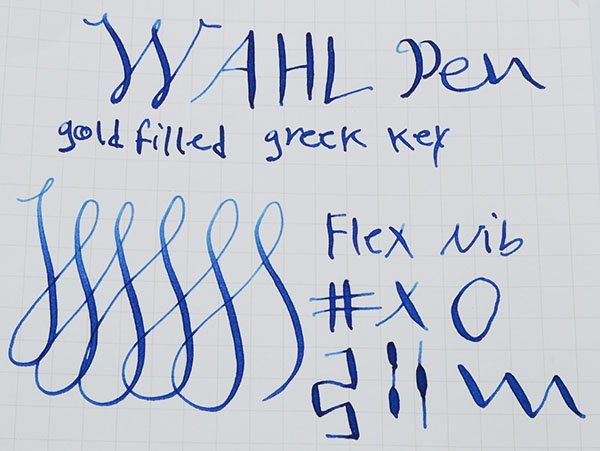 WAHL Pen
gold filled greek key
Flex Nib
# X O